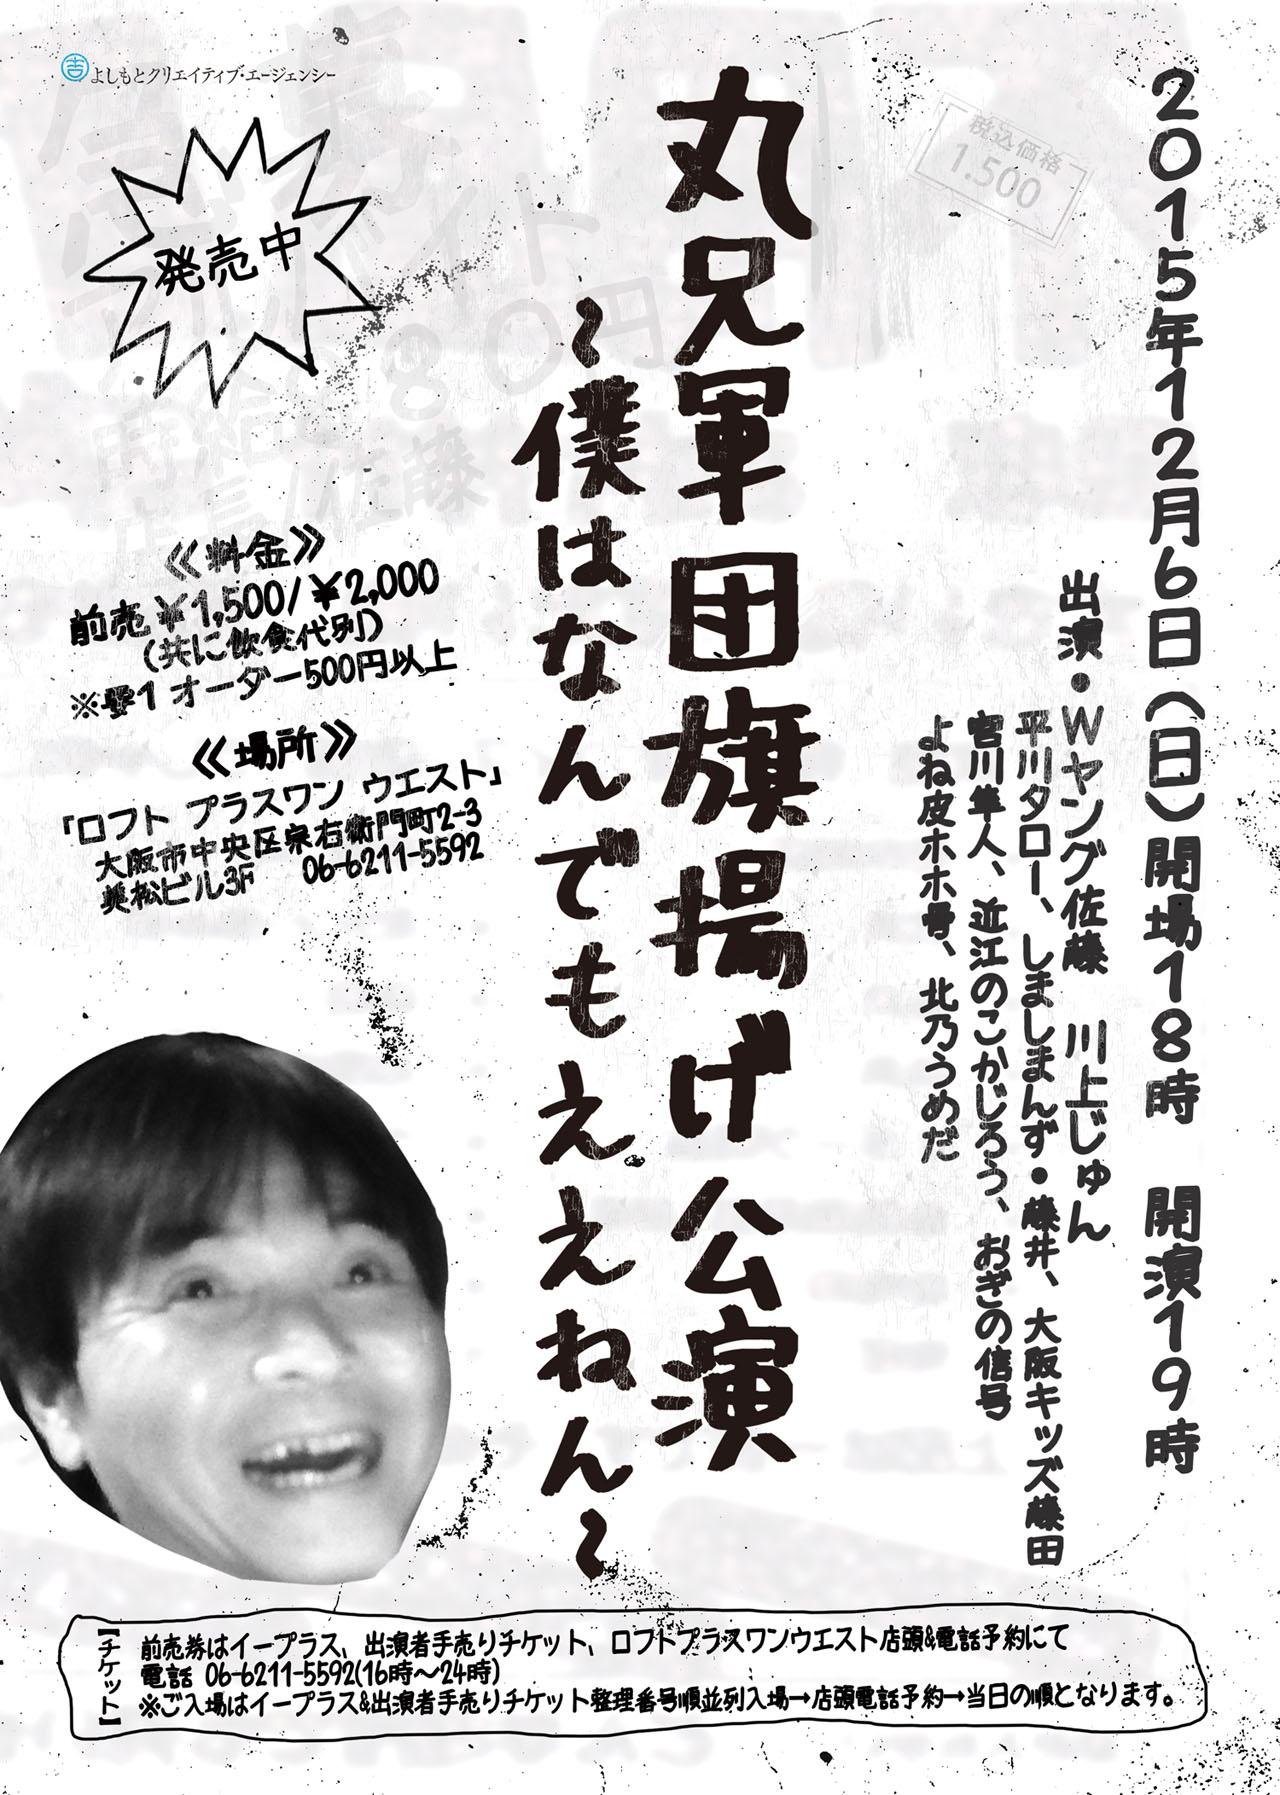 よしもとクリエイティブ・エージェンシー
2015年12月6日(日)開場18時 開演19時
出演・Wヤング佐藤 川上じゅん
平川タロー、しましまんず・藤井、大阪キッズ藤田
宮川隼人、近江のこかじろう、おぎの信号
よね皮ホホ骨、北乃うめだ
税込価格
1.500
丸兄軍団旗揚げ公演
～僕はなんでもええねん～
発売中
《料金》
前売¥1,500/¥2,000
(共に飲食代別)
※要1オーダー500円以上
《場所》
「ロフト プラスワン ウエスト」
大阪市中央区宗右衛門町2-3
美松ビル3F 06-6211-5592
【チケット】
前売券はイープラス、出演者手売りチケット、ロフトプラスワンウエスト店頭&電話予約にて
電話 06-6211-5592(16時～24時)
※ご入場はイープラス&出演者手売りチケット整理番号順並列入場→店頭電話予約→当日の順となります。